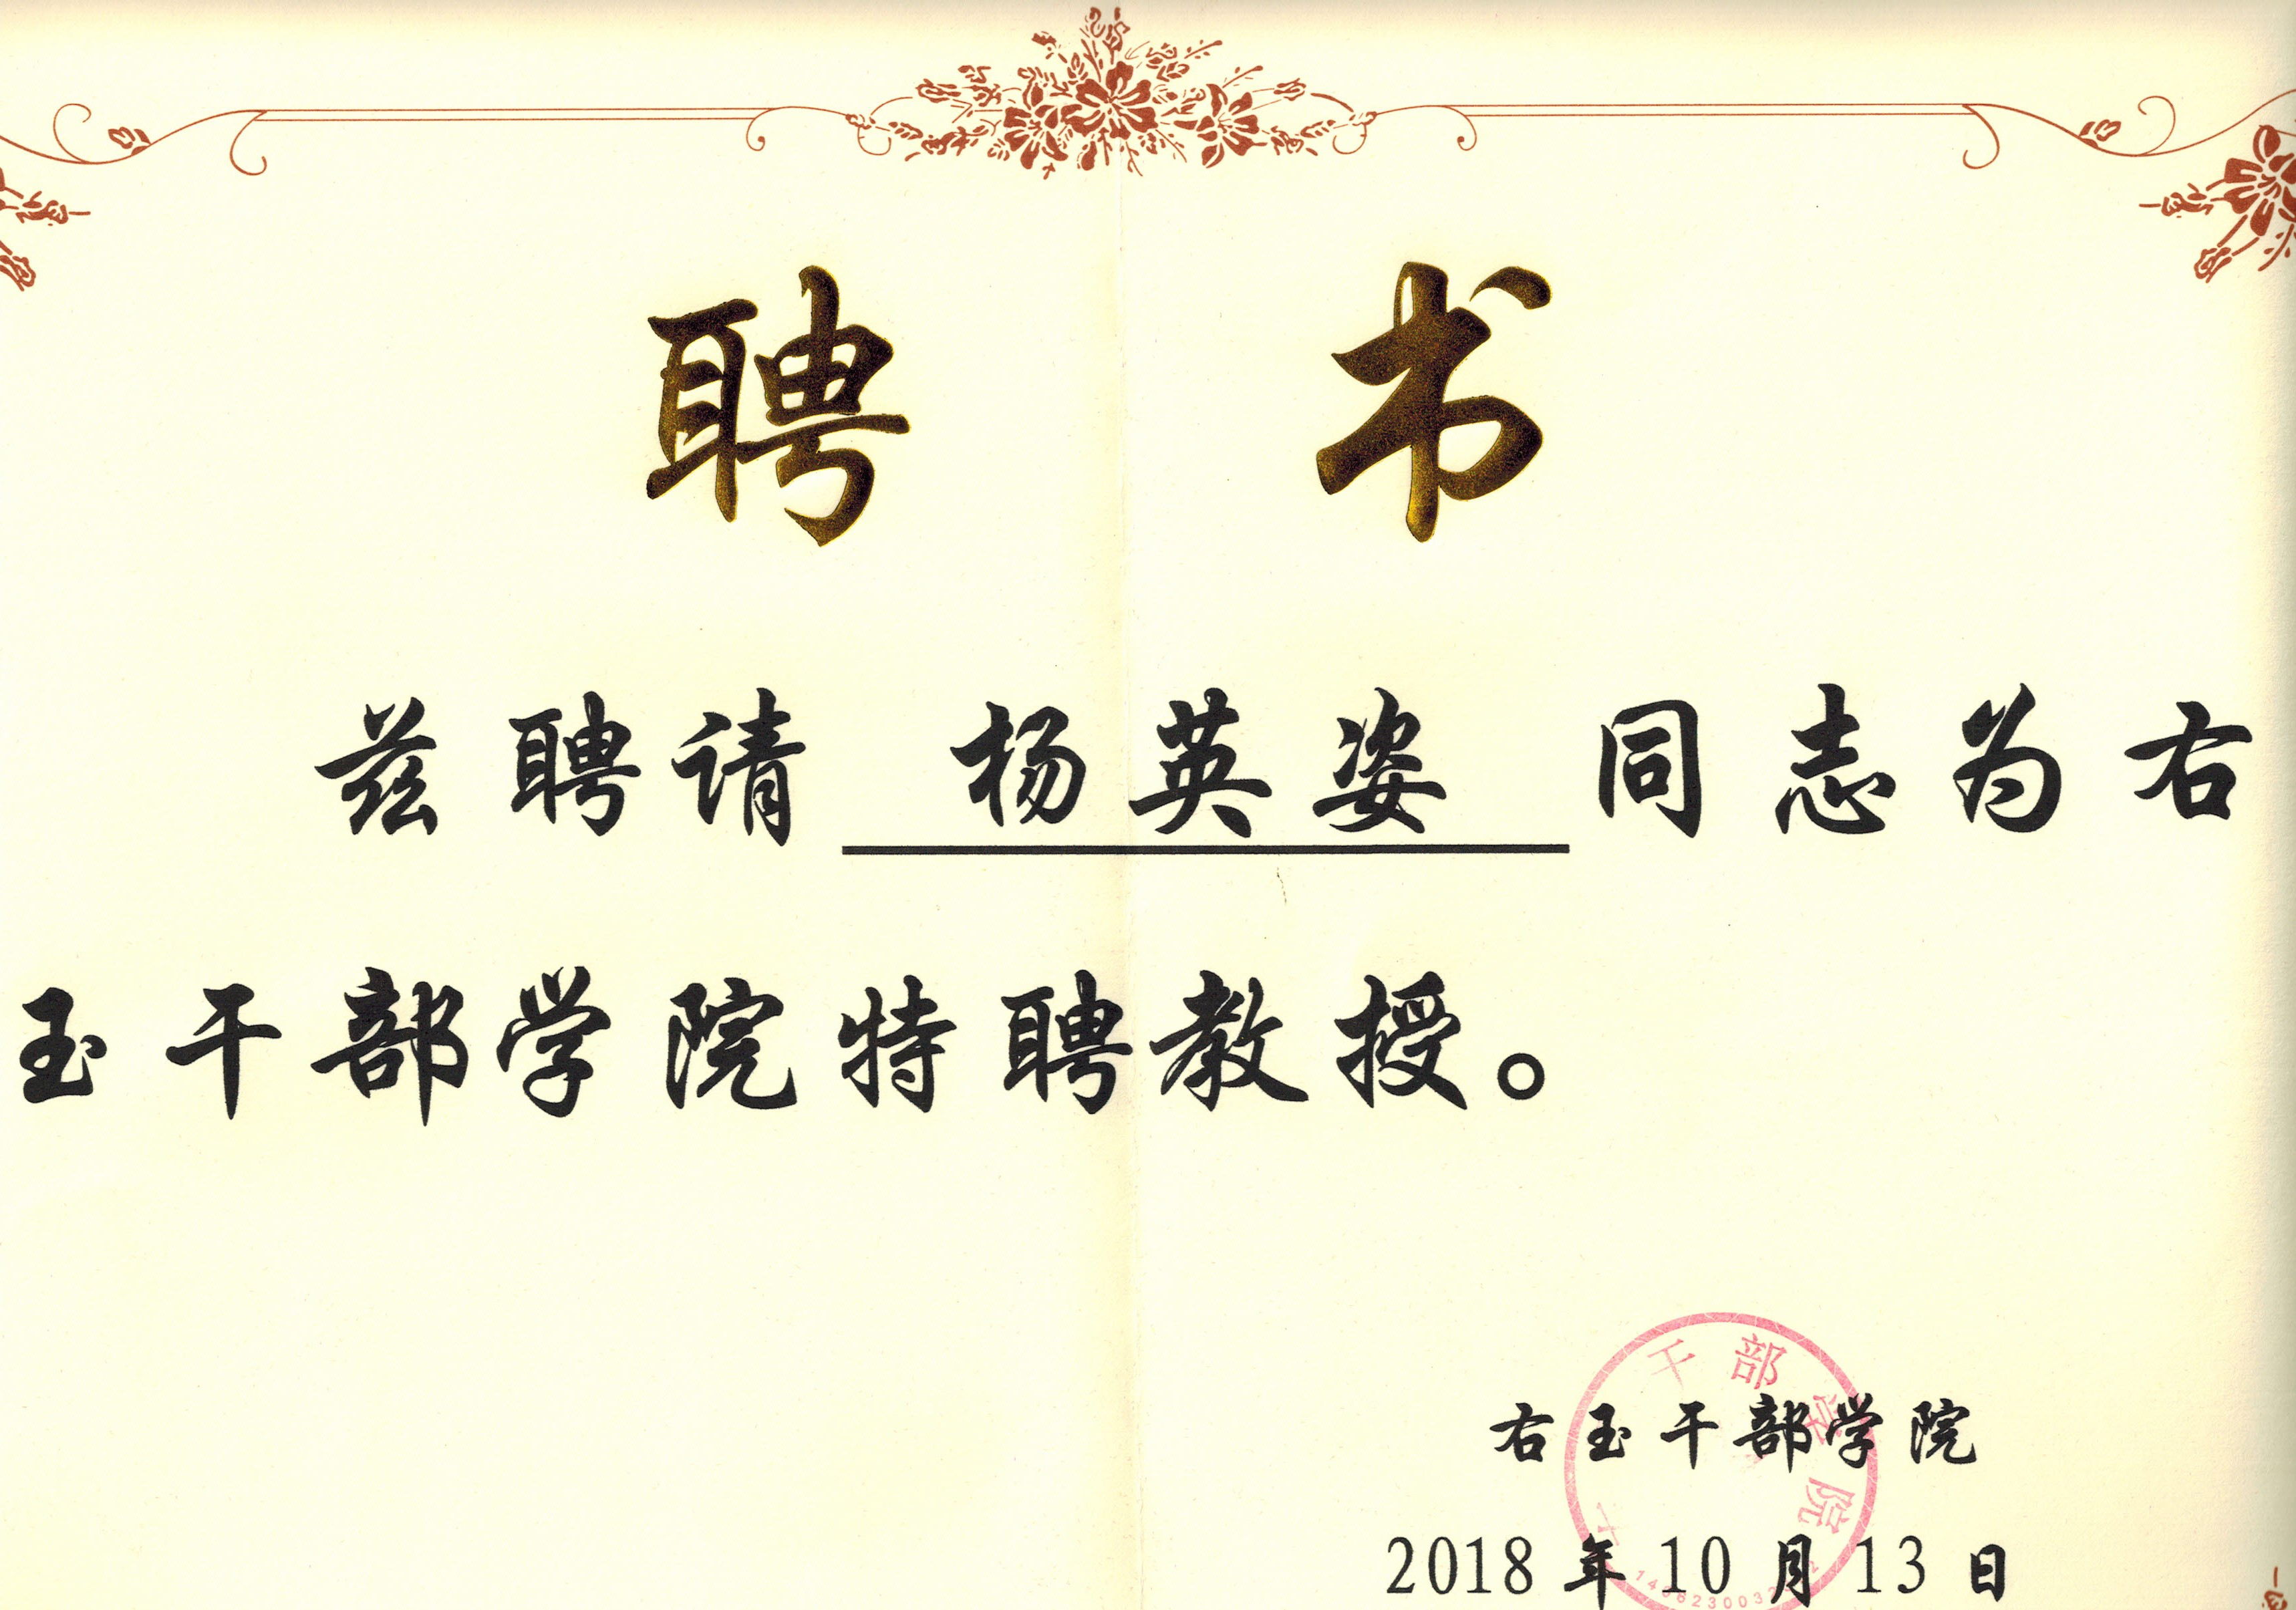 聘 书
兹聘请 杨英姿 同志为右
玉干部学院特聘教授。
干部学院
右玉干部学院
2018年10月13日